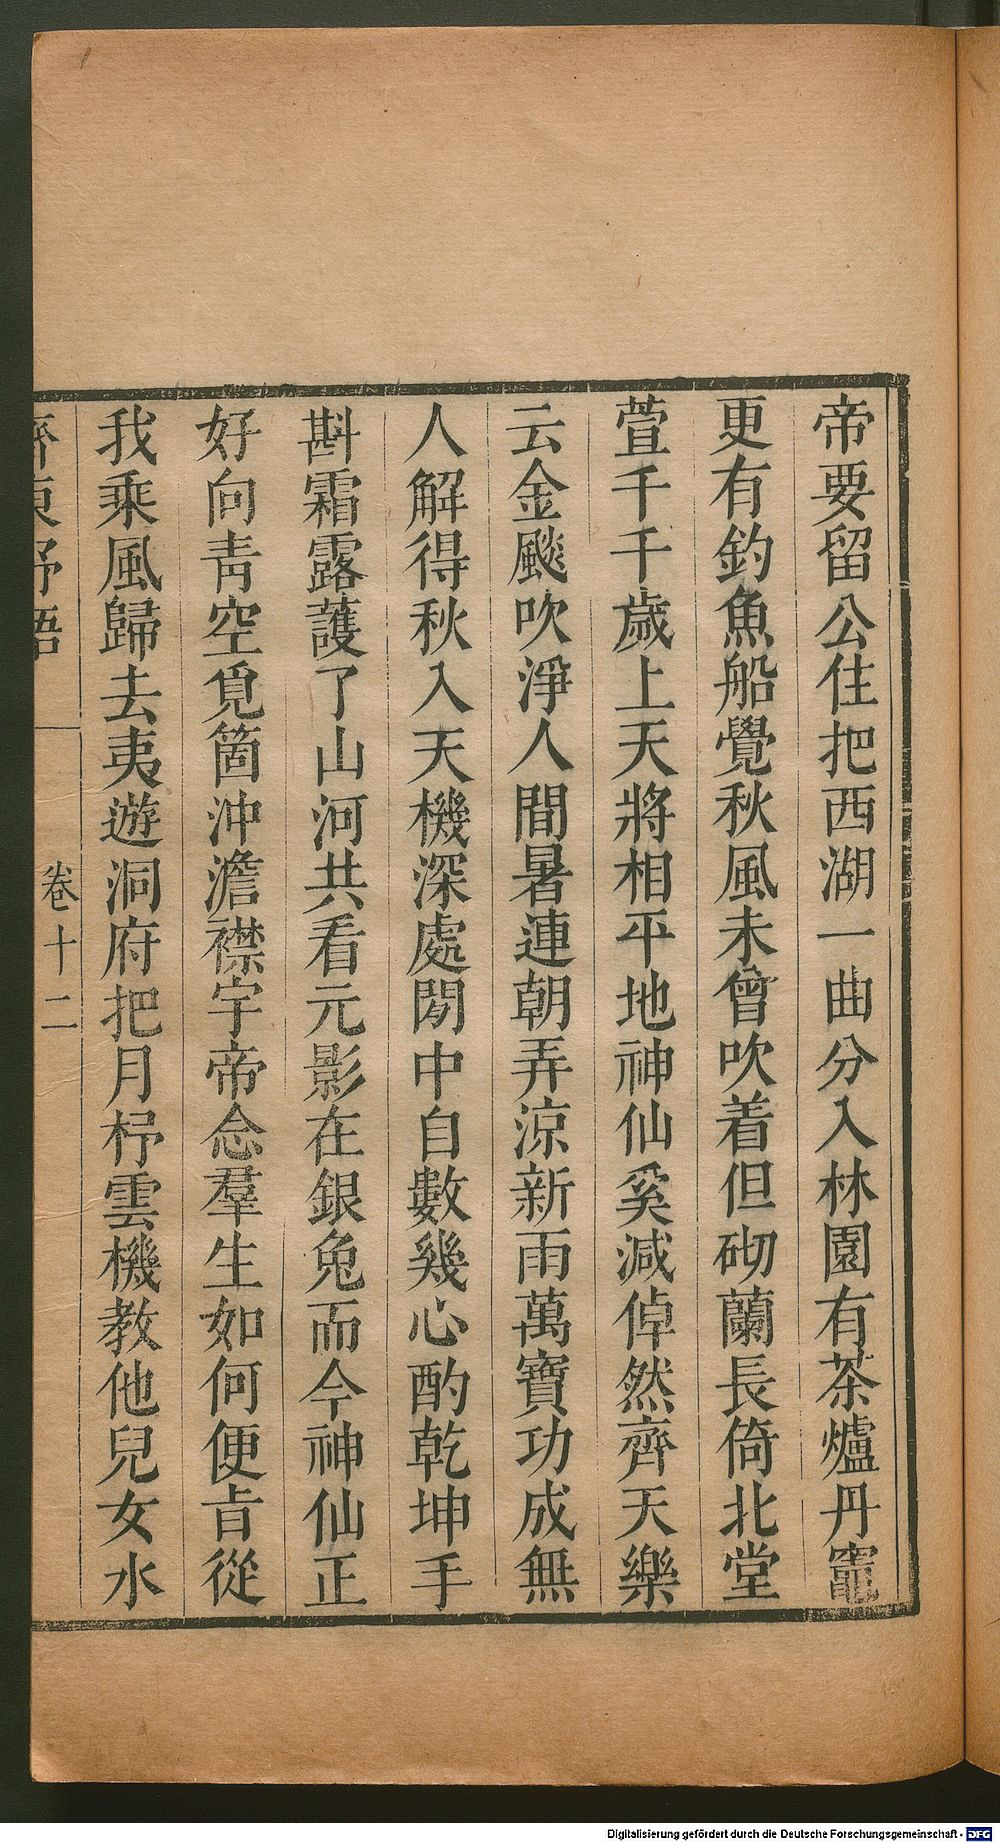 帝要留公住把西湖一曲分入林園有茶爐丹竈
更有釣魚船覺秋風未曾吹着但砌蘭長倚北堂
萱千千歲上天將相平地神仙奚減倬然齊天樂
云金飈吹淨人間暑連朝弄涼新雨萬寶功成無
人解得秋入天機深處閒中自數幾心酌乾坤手
斟霜露護了山河共看元影在銀兔而今神仙正
好向靑空覓箇沖澹襟宇帝念羣生如何便肯從
我乘風歸去夷遊洞府把月杼雲機教他兒女水
齊東野語
卷十二
Digitalisierung gefördert durch die Deutsche Forschungsgemeinschaft - DFG